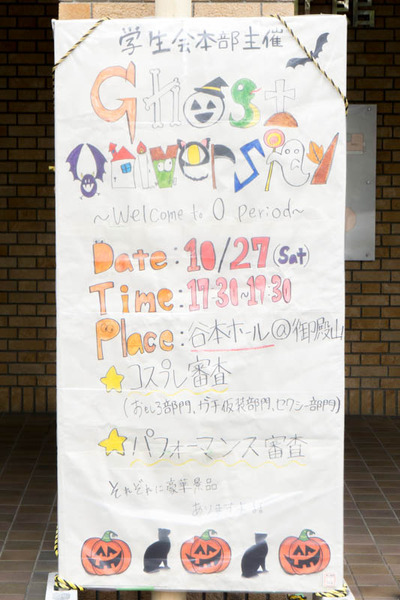 学生会本部主催
Ghost
University
~Welcome to O period~
Date:10/27(Sat)
Time:17:30~19:30
Place:谷本ホール@御殿山
コスプレ審査
(おもしろ部門、ガチ仮装部門、セクシー部門)
パフォーマンス審査
それぞれに豪華景品
あります